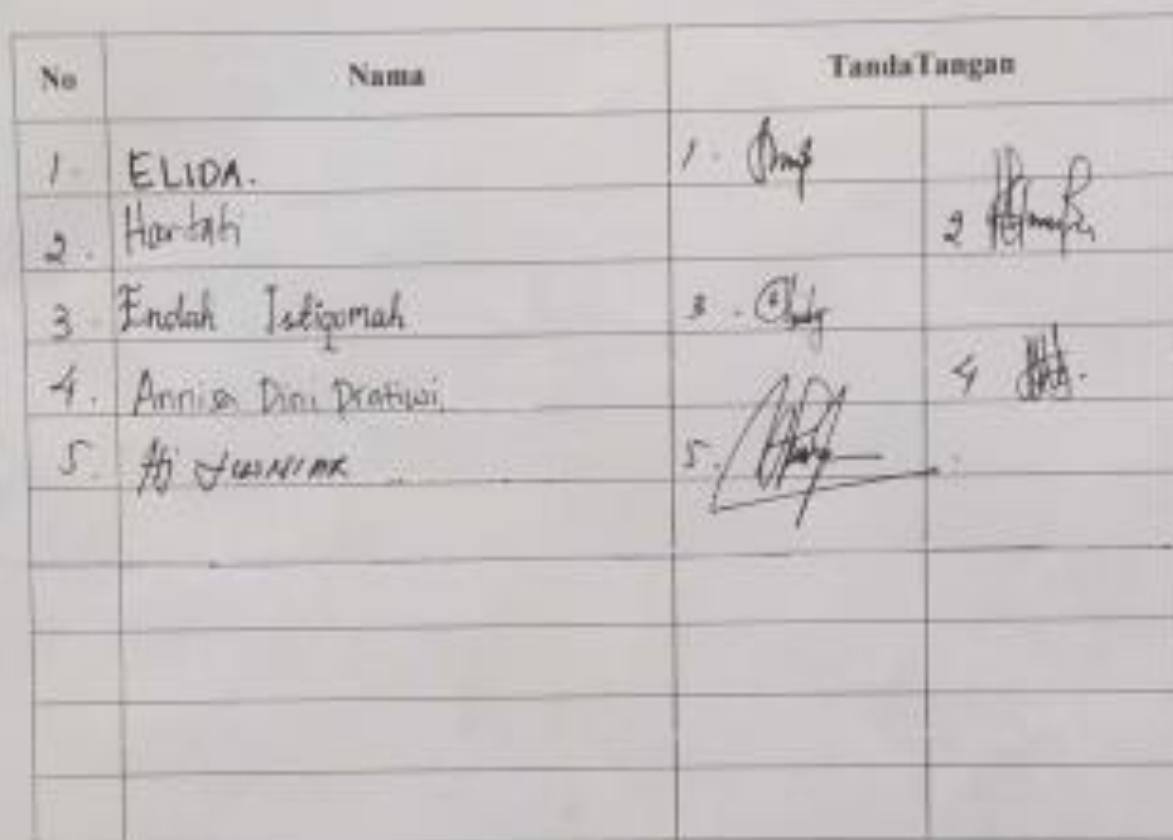 No Nama TandaTangan
1. ELIDA. 1.
2. Hartati 2
3 Endah Istiqomah 3.
4. Annisa Dini Pratiwi 4
5. Hj 5.